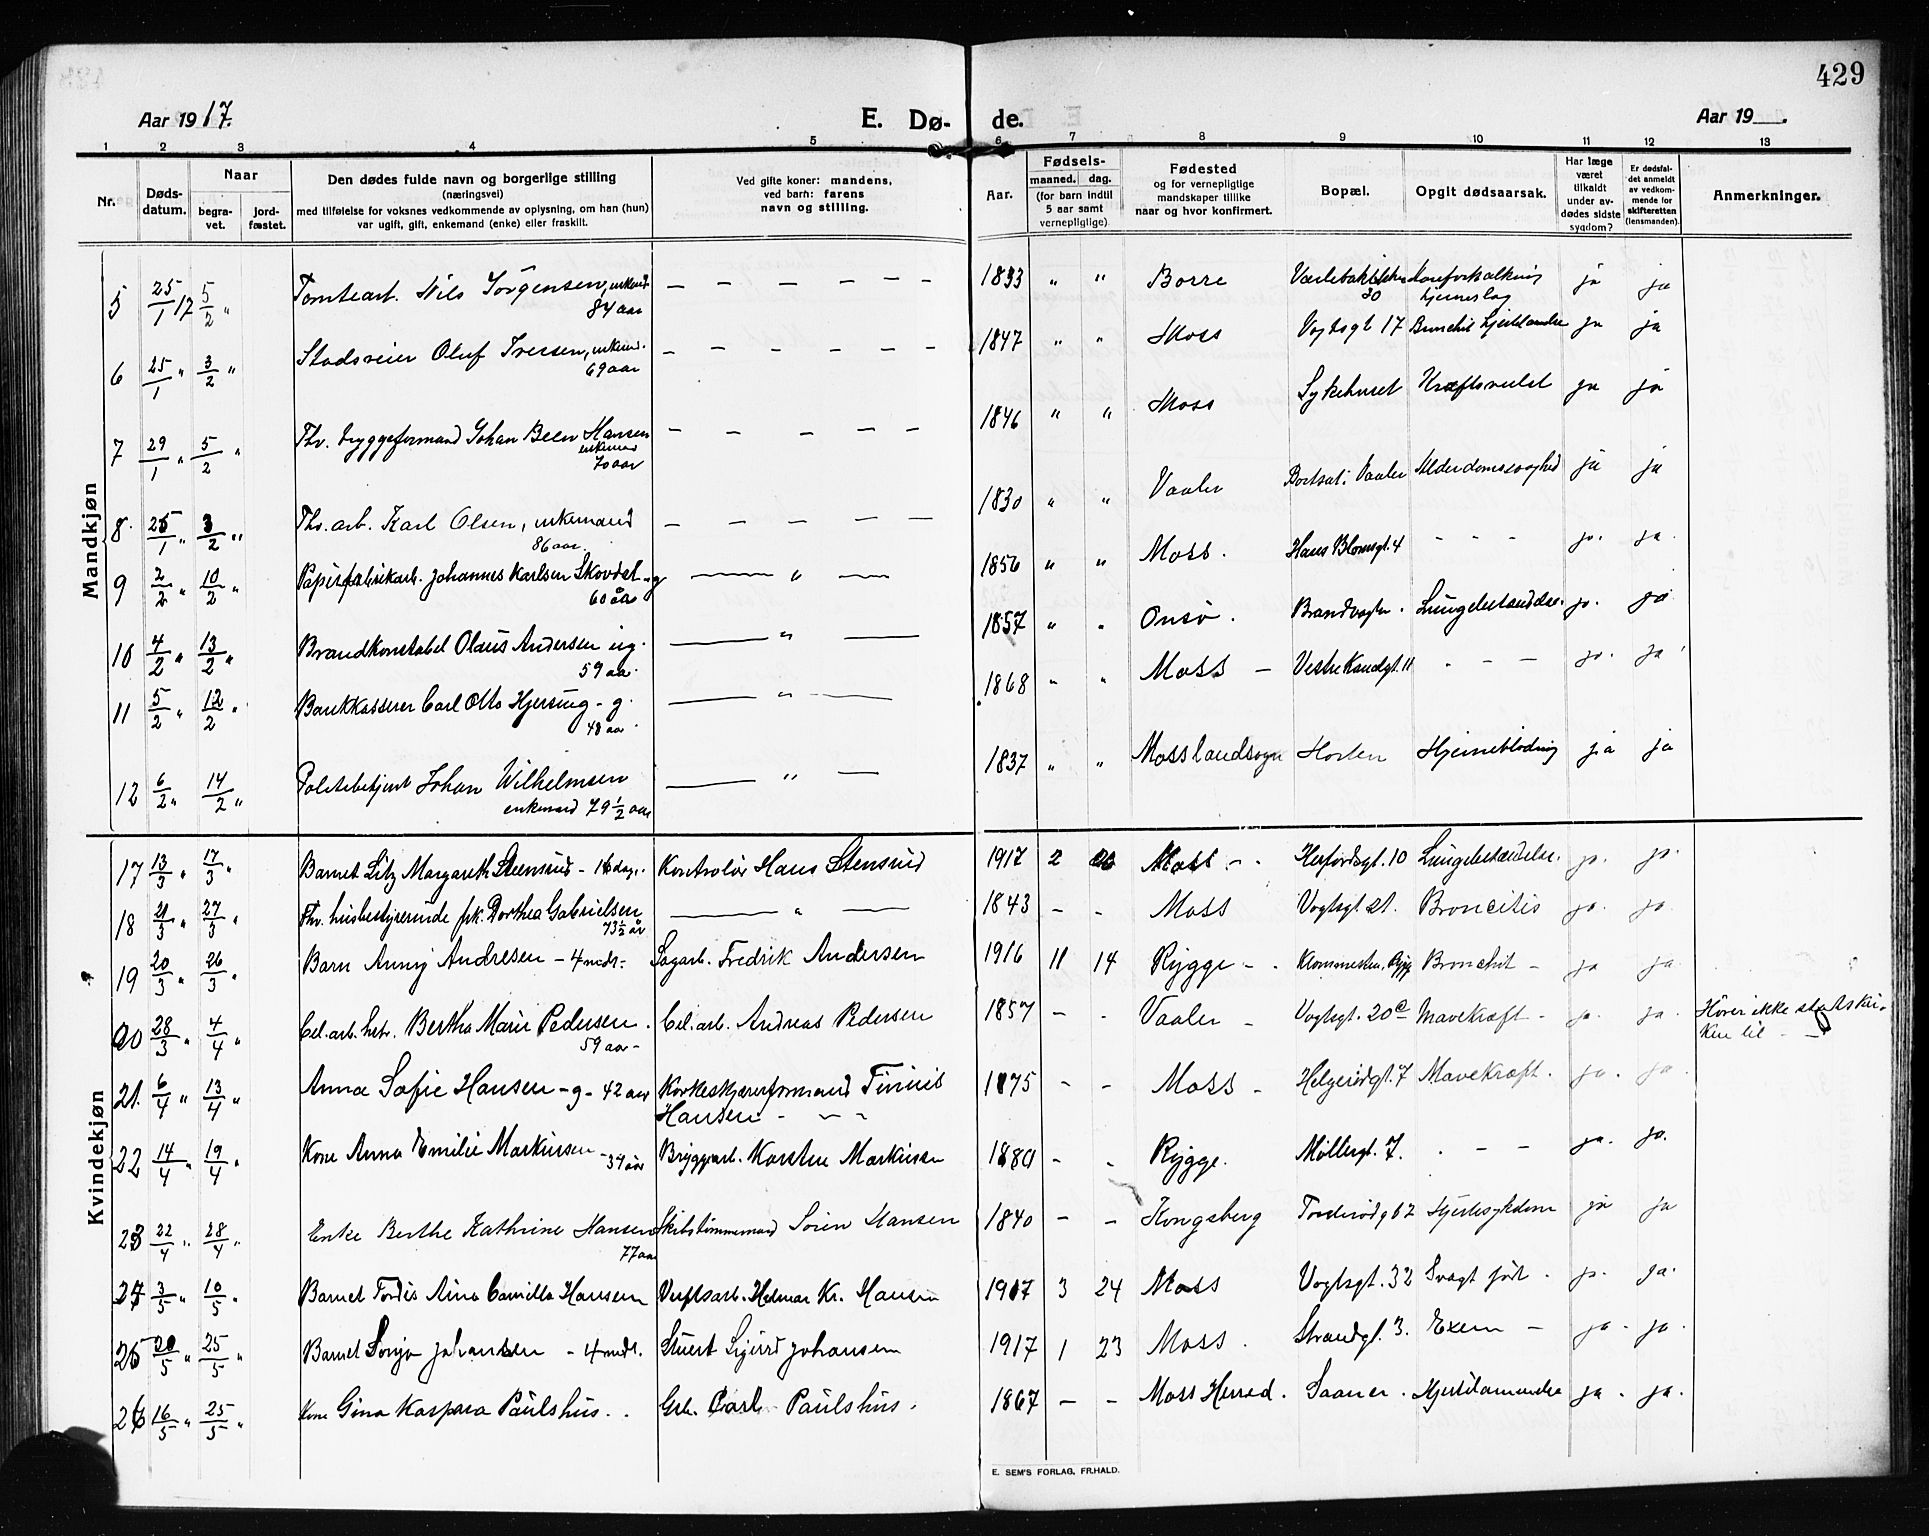 429
Aar 1917.
E. Dø-
de.
Aar 19__.
1 2 3 4 5 6 7 8 9 10 11 12 13
Nr.
Døds-
datum.
Naar
begra-
vet.
jord-
fæstet.
Den dødes fulde navn og borgerlige stilling
(næringsvei)
med tilføielse for voksnes vedkommende av oplysning, om han (hun)
var ugift, gift, enkemand (enke) eller fraskilt.
Ved gifte koner: mandens,
ved barn: farens
navn og stilling.
Aar.
Fødsels-
maaned. dag.
(for barn indtil
5 aar samt
vernepligtige)
Fødested
og for vernepligtige
mandskaper tillike
naar og hvor konfirmert.
Bopæl.
Opgit dødsaarsak.
Har læge
været
tilkaldt
under av-
dødes sidste
sygdom?
Er dødsfal-
det anmeldt
av vedkom-
mende for
skifteretten
(lensmanden).
Anmerkninger.
Mandkjøn
5 25/1 17 5/2 " Tomtearb. Nils Jörgensen, enkemd — — — — — — 1833 " " Borre ja ja
84 aar 30 hjerneslag
6 25/1 " 3/2 " Oluf Iversen, enkemd. — — — — — — 1847 " " Moss Vogtsgt 17 ja ja
69 aar
7 29/1 " 5/2 " Fhv. bryggeformand Johan Been Hansen — — — — — 1846 " " Moss Sykehuset Kræftsvulst ja ja
enkemand
70 aar
8. 25/1 " 3/2 " Fhv. arb. Karl Olsen, enkemand — — — — — 1830 " " Vaaler Bortsat i Vaaler Alderdomssvaghed ja ja
86 aar.
9 2/2 " 10/2 " Papirfabrikarb. Johannes Karlsen Skovdal - g — " — 1856 " " Moss. Hans Blomsgt. 4 - - - ja. ja.
60 år
10 4/2 " 13/2 " Brandkonstabel Olaus Andersen ug. — " — 1857 " " Onsø. Brandvagten. Lungebetændelse. ja. ja
59 aar.
11 5/2 " 12/2 " Bankkasserer Carl Otto Hjersing - g. — " — 1868 " " Moss — Vestre Kanalgt. 11 - - - ja. ja.
48 aar.
12 6/2 " 14/2 " Politibetjent Johan Wilhelmsen — " — 1837 " " Moss landsogn Horten Hjerneblødning ja ja
enkemand 79 1/2 aar
Kvindekjøn
17 13/3 " 17/3 " Barnet Margareth Steensrud - 16 dag. Kontrolør Hans Stensrud 1917 2 Moss - - Herfordsgt. 10 Lungebetændelse. ja. ja.
18 21/3 " 27/3 " Fhv. husbestyrerinde frk. Dorthea Gabrielsen — " — 1843 - - Moss Vogtsgt 21. Broncitis ja. ja.
73 1/2 år
19 20/3 " 26/3 " Barn Anny Andresen - 4 mdr. Sagarb. Fredrik Andersen 1916 11 14 Rygge - - Rygge Bronchit - ja ja
20 28/3 " 4/4 " Cel. arb. hstr. Bertha Marie Pedersen. Cel. arb. Andreas Pedersen 1857 - - Vaaler - Vogtsgt. 20 c Mavekræft - ja. ja. Hører ikke statskir-
59 aar - ken til - -
21. 6/4 " 13/4 " Anna Sofie Hansen - g - 42 aar Korkeskjærerformand Tinius 1875 - - Moss - Helgerødgt. 7 Mavekræft. ja. ja.
Hansen - - -
22 14/4 " 19/4 " Kone Anna Emilie Markussen - 34 år Bryggearb. Karsten Markussen - - Rygge. Møllergt. 7. - - - ja. ja.
23 22/4 " 28/4 " Enke Berthe Kathrine Hansen Skibstømmermand Søren Hansen 1840 - - Kongsberg Hjertesykdom ja ja
77 aar
24 3/5 " 10/5 " Barnet Tordis Aina Camilla Hansen Verftsarb. Helmer Kr. Hansen 1917 3 24 Moss Vogtsgt. 32 Svagt født. ja. ja.
25 20/5 " 25/5 " Barnet Sonja Johansen - 4 mdr. Stuert Sigurd Johansen 1917 1 23 Moss. Strandgt. 3. Exem - ja. ja.
26 16/5 " 25/5 " Kone Gina Kaspara Paulshus. . Grb. Carl Paulshus. 1867 - - Moss Herred. Saaner. ja. ja.
E. SEM'S FORLAG, FR.HALD.